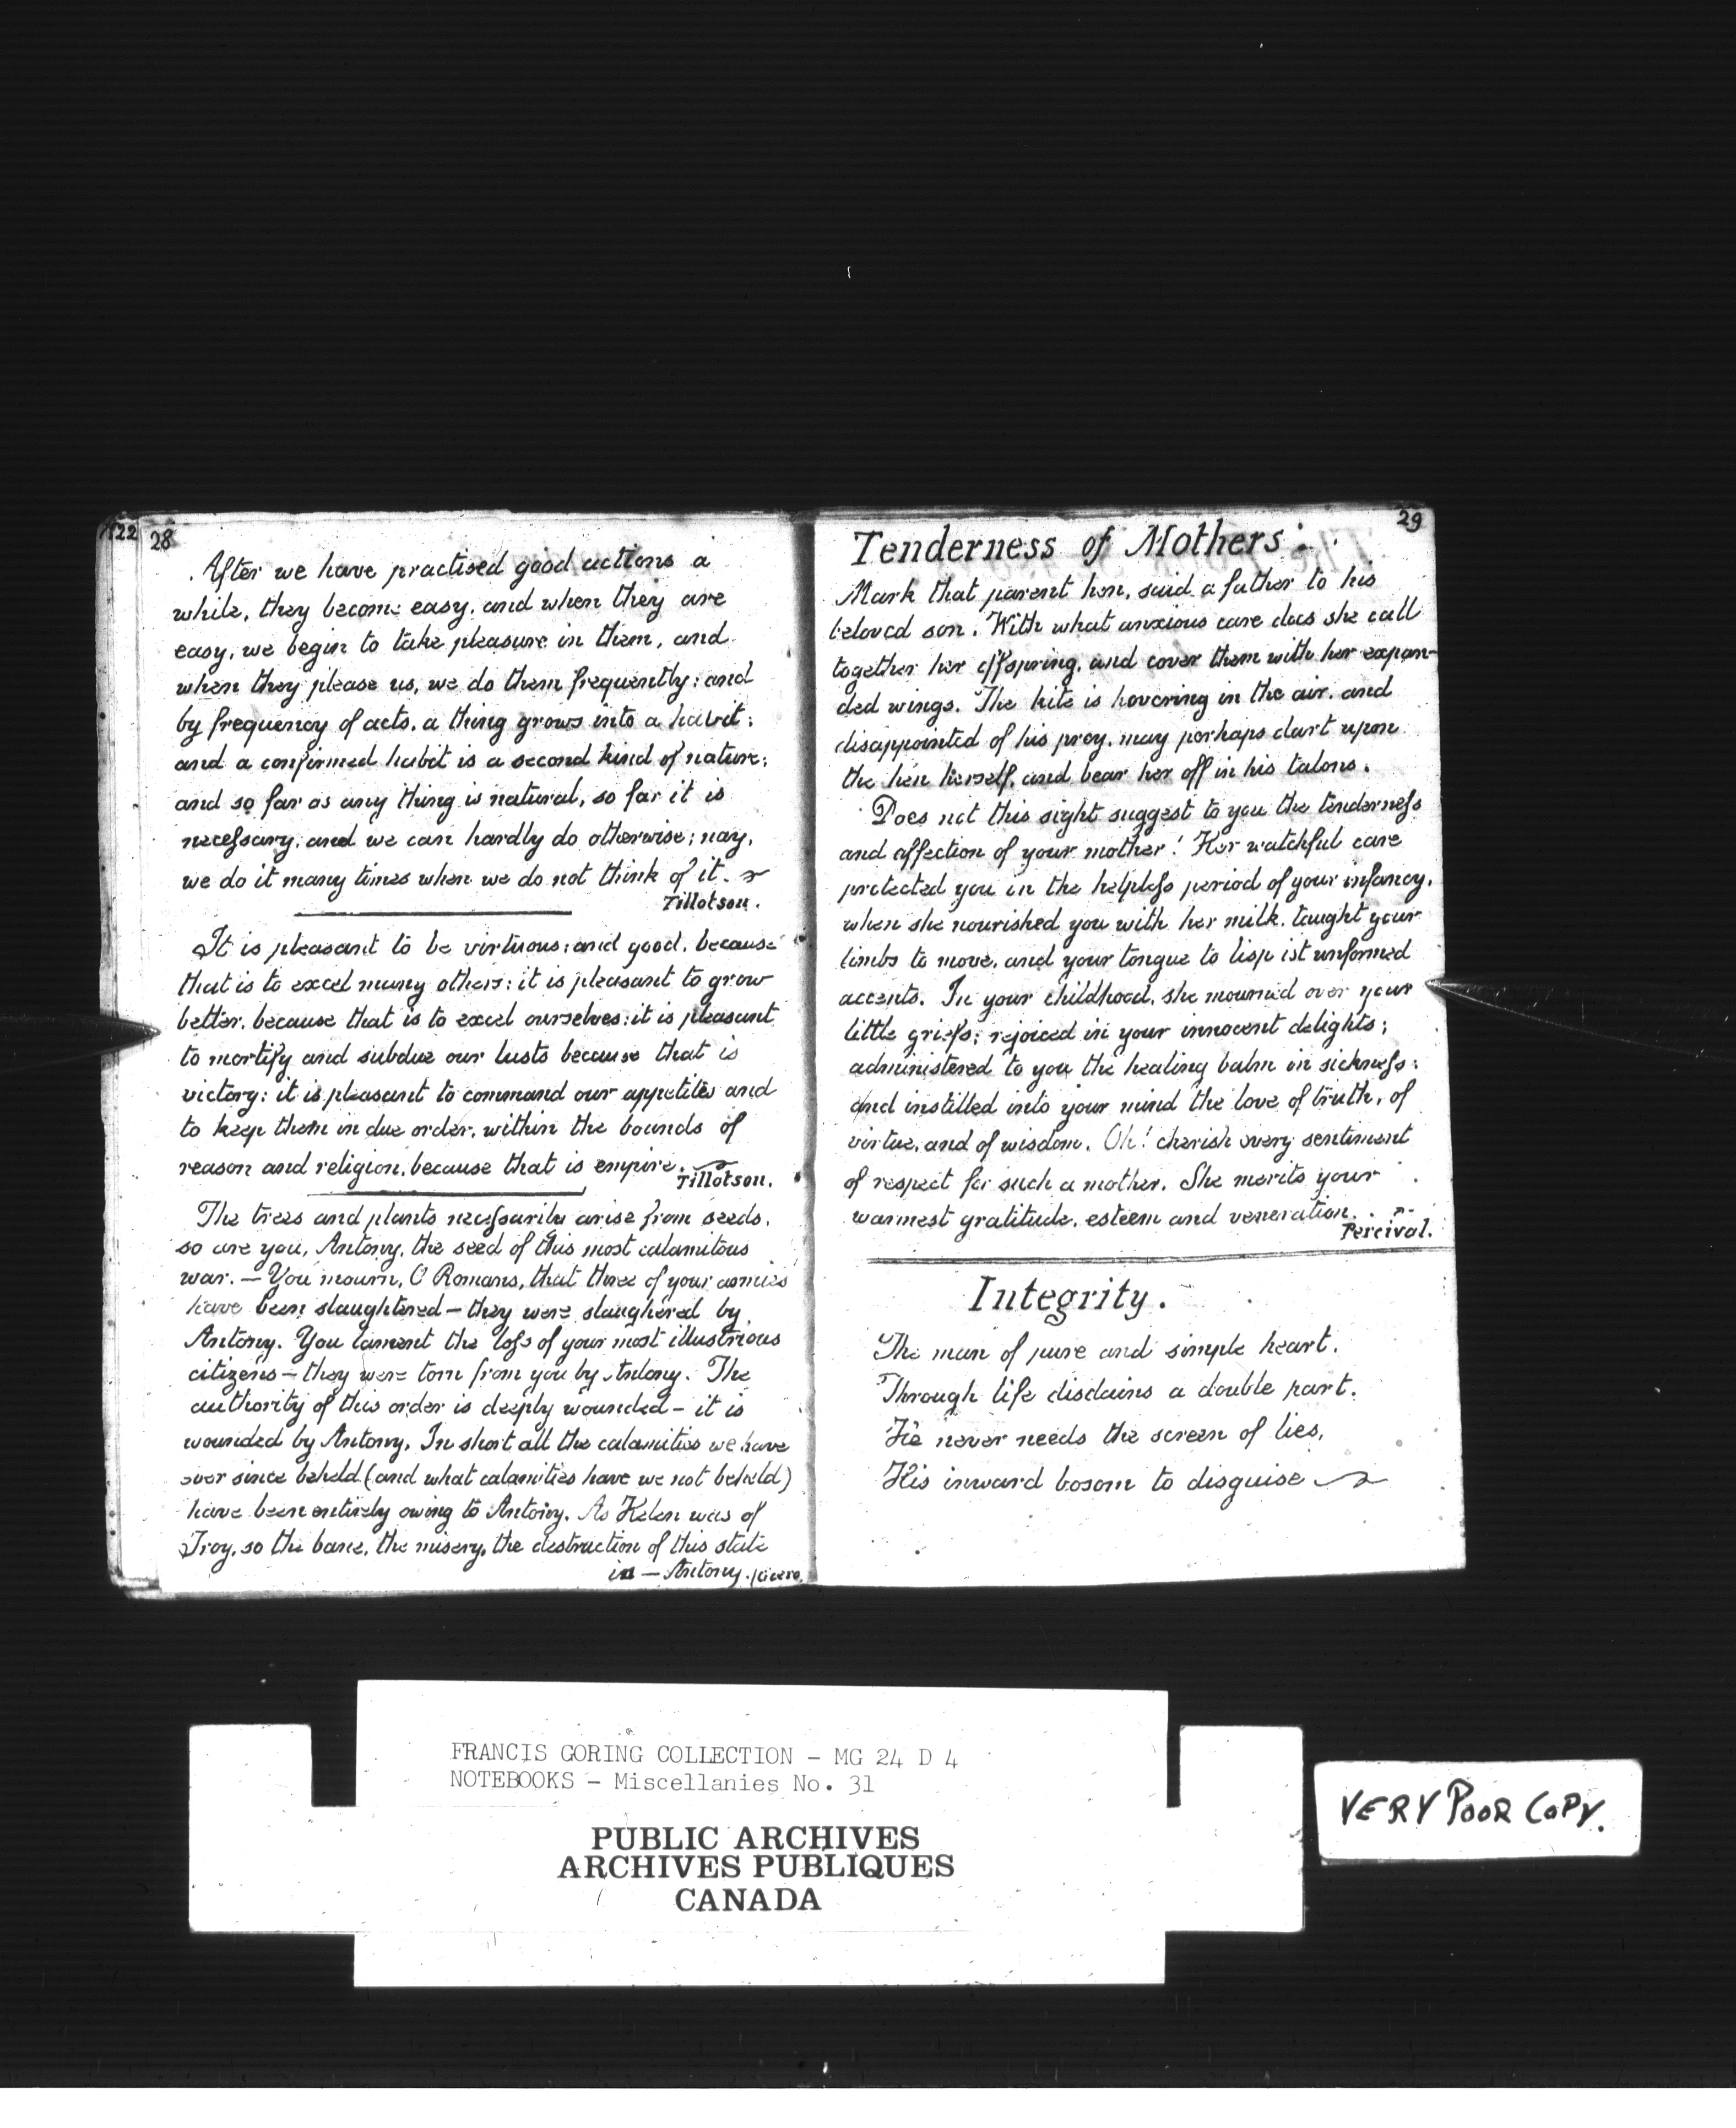 122
28
After we have practised good actions a
while, they become easy, and when they are
easy, we begin to take pleasure in them, and
when they please us, we do them frequently; and
by frequency of acts, a thing grows into a habit;
and a confirmed habit is a second kind of nature;
and so far as any thing is natural, so far it is
necessary, and we can hardly do otherwise; nay,
we do it many times when we do not think of it.
Tillotson.
It is pleasant to be virtuous and good, because
that is to excel many others: it is pleasant to grow
better, because that is to excel ourselves: it is pleasant
to mortify and subdue our lusts because that is
victory: it is pleasant to command our appetites and
to keep them in due order, within the bounds of
reason and religion, because that is empire.
Tillotson.
The trees and plants necessarily arise from seeds,
so are you, Antony, the seed of this most calamitous
war. — You mourn, O Romans, that three of your armies
have been slaughtered — they were slaughered by
Antony. You lament the loss of your most illustrious
citizens — they were torn from you by Antony. The
authority of this order is deeply wounded — it is
wounded by Antony. In short all the calamities we have
ever since beheld (and what calamities have we not beheld)
have been entirely owing to Antony. As Helen was of
Troy, so the bane, the misery, the destruction of this state
is — Antony. Cicero.
29
Tenderness of Mothers.
Mark that parent hen, said a father to his
beloved son. With what anxious care does she call
together her offspring, and cover them with her expan-
ded wings. The kite is hovering in the air, and
disappointed of his prey, may perhaps dart upon
the hen herself, and bear her off in his talons.
Does not this sight suggest to you the tenderness
and affection of your mother! Her watchful care
protected you in the helpless period of your infancy,
when she nourished you with her milk, taught your
limbs to move, and your tongue to lisp ist unformed
accents. In your childhood, she mourned over your
little griefs; rejoiced in your innocent delights;
administered to you the healing balm in sickness;
and instilled into your mind the love of truth, of
virtue, and of wisdom. Oh! cherish every sentiment
of respect for such a mother. She merits your
warmest gratitude, esteem and veneration.
Percival.
Integrity.
The man of pure and simple heart,
Through life disdains a double part.
He never needs the screen of lies,
His inward bosom to disguise
FRANCIS GORING COLLECTION - MG 24 D 4
NOTEBOOKS - Miscellanies No. 31
PUBLIC ARCHIVES
ARCHIVES PUBLIQUES
CANADA
VERY POOR COPY.